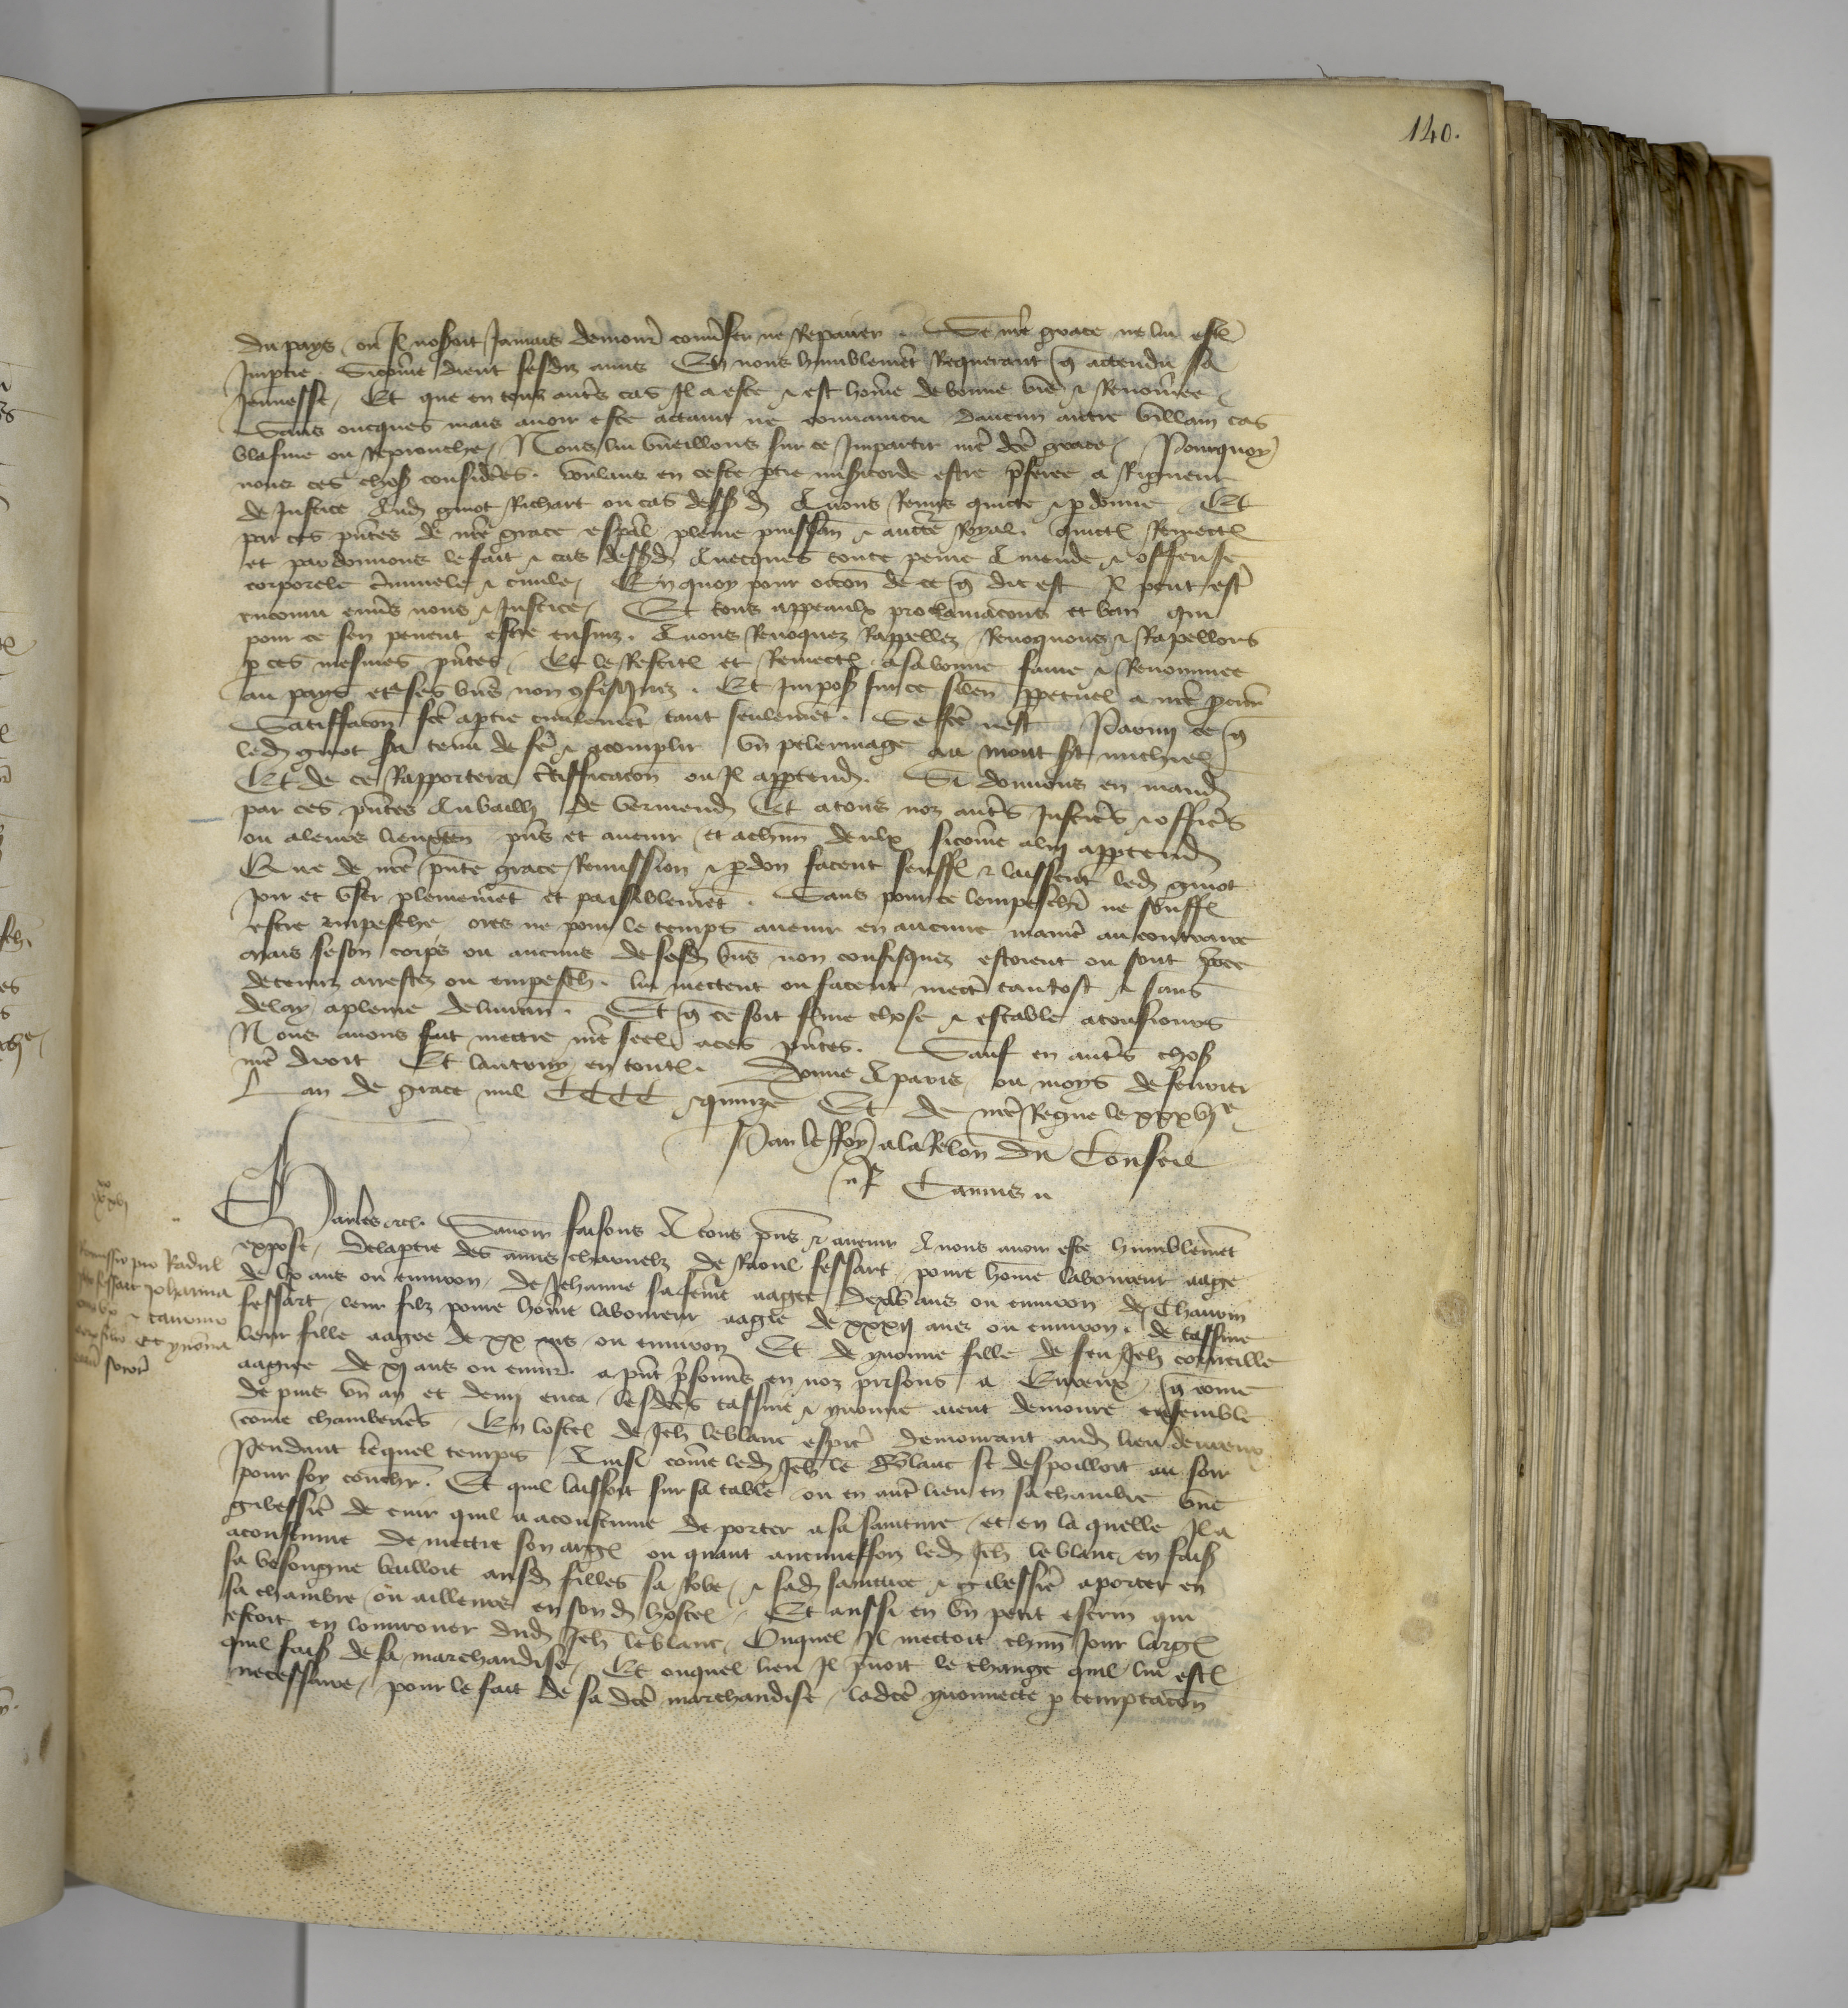 140.
du pays ou Il nosoit Jamais demourer conuerser ne Reparer. Se nre grace ne lui estoit
Impartie. Sicome dient sesdiz amis En nous humblemt Requerant q actendu sa
Jeunesse, Et que en touz autres cas Il a este & est home de bonne vie & Renomee
Sans oncques mais auoir este actaint ne conuaincu daucun autre villain cas
blasme ou Reprouche, Nous lui vueillons sur ce Impartir nre dce grace, Pourquoy
nous ces choses considerees. voulans en ceste ptie misericorde estre preferee a Rigueur
de Justice Aud guiot Richart ou cas dessusd Auons Remis quicte & pdonne Et
par ces pntes de nre grace espal plaine puissance & aucte Royal. quictons Remectons
et pardonnons le fait & cas dessusd Auecques toute peine Amende & offense
corporele criminele & ciuile, En quoy pour occon de ce q dit est Il peut estre
encouru enuers nous & Justice, Et tous appeaulx proclamacons et ban qui
pour ce sen peuent estre ensuiz. Auons Reuoquez Rappellez Reuoquons & Rapellons
p ces mesmes pntes, Et le Restituons et Remectons a sa bonne fame & Renommee
au pays et a ses biens non confisquez. Et Imposons sur ce silence perpetuel a nre procureur
Satisfacon fce a partie ciuilement tant seulemt. Se fce nest Parmy ce q
led guiot sera tenu de fere & acomplir vn pelerinage au mont st michiel
Et de ce Rapportera certifficacon ou Il appartendra. Si donnons en mandement
par ces pntes Au bailli de vermendois Et a tous noz autres Justiciers & officiers
ou a leurs lieuxten pns et auenir et a chun deulx sicome a luy appartendra
Que de nre pnte grace Remission & pdon facent seuffrent & laissent led guiot
Joir et vser plainemet et paisiblemet. Sans pour ce lempeschier ne souffrir
estre empesche ores ne pour le temps auenir en aucune maniere au contraire
mais se son corps ou aucuns de sesd biens non confisquez estoient ou sont pour ce
detenuz arrestez ou empeschez. lui mectent ou facent mectre tantost & sans
delay a plaine deliurance. Et q ce soit ferme chose & estable a tousiours
Nous auons fait mectre nre seel a ces pntes. Sauf en autres choses
nre droit Et lautruy en toutes. Donne A paris ou moys de feurier
Lan de grace mil CCCC & quinze Et de nre Regne le xxxvje
Par le Roy a la Relon du Conseil
Camus
Charles etc. Sauoir faisons A tous pns & auenir A nous auoir este humblemet
expose, de la ptie des amis charnelz de Raoul fessart poure home laboureur aage
de lx ans ou enuiron, de Jehanne sa feme aagee de xlv ans ou enuiron de Chauuin
fessart leur filz poure home laboureur aagie de xxxij ans ou enuiron. de tassine
leur fille aagee de xx ans ou enuiron Et de yuonne fille de feu Jeh corneille
aagiee de xj ans ou enuir. a pnt prisonniers en noz prisons a Eureux, q come
depuis vn an et demy enca lesdces tassine & yuonne aient demoure ensemble
come chamberieres En lostel de Jeh leblanc espicier demourant aud lieu deureux
Pendant lequel temps Ainsi come led Jeh le blanc se despoilloit au soir
pour soy couchier. Et quil laissoit sur sa table ou en autre lieu en sa chambre vne
gibessiere de cuir quil a acoustume de porter a sa sainture et en la quelle Il a
acoustume de mectre son argent ou quant aucuneffoiz led Jeh leblanc en faisant
sa besongne bailloit ausd filles sa Robe & sad sainture & gibessiere a porter en
sa chambre ou ailleurs en sond hostel, Et aussi en vn petit escrin qui
estoit en louurouer dud Jeh leblanc, Ouquel Il mectoit chun Jour largent
quil faisoit de sa marchandise, Et ouquel lieu Il prenoit le change quil lui estoit
necessaire, pour le fait de sa dce marchandise, ladce yuonnecte p temptacon
Remissio pro Radul